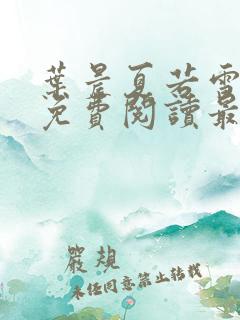 葉晨夏若雪
免費閱讀最
嚴規
未经同意禁止转载